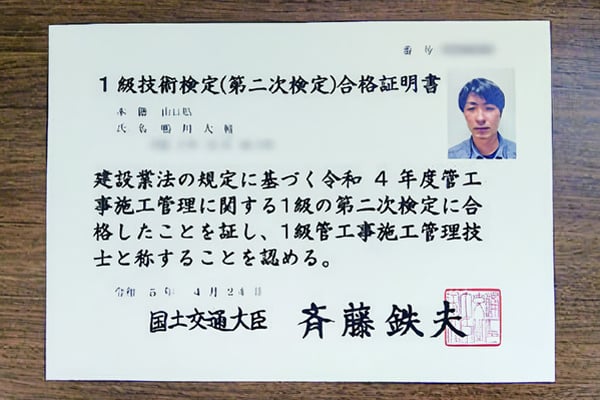 番号
1級技術検定(第二次検定)合格証明書
本籍 山口県
氏名 鴨川大輔
建設業法の規定に基づく令和 4 年度管工
事施工管理に関する1級の第二次検定に合
格したことを証し、1級管工事施工管理技
士と称することを認める。
令和 5年 4月24日
国土交通大臣 斉藤鉄夫